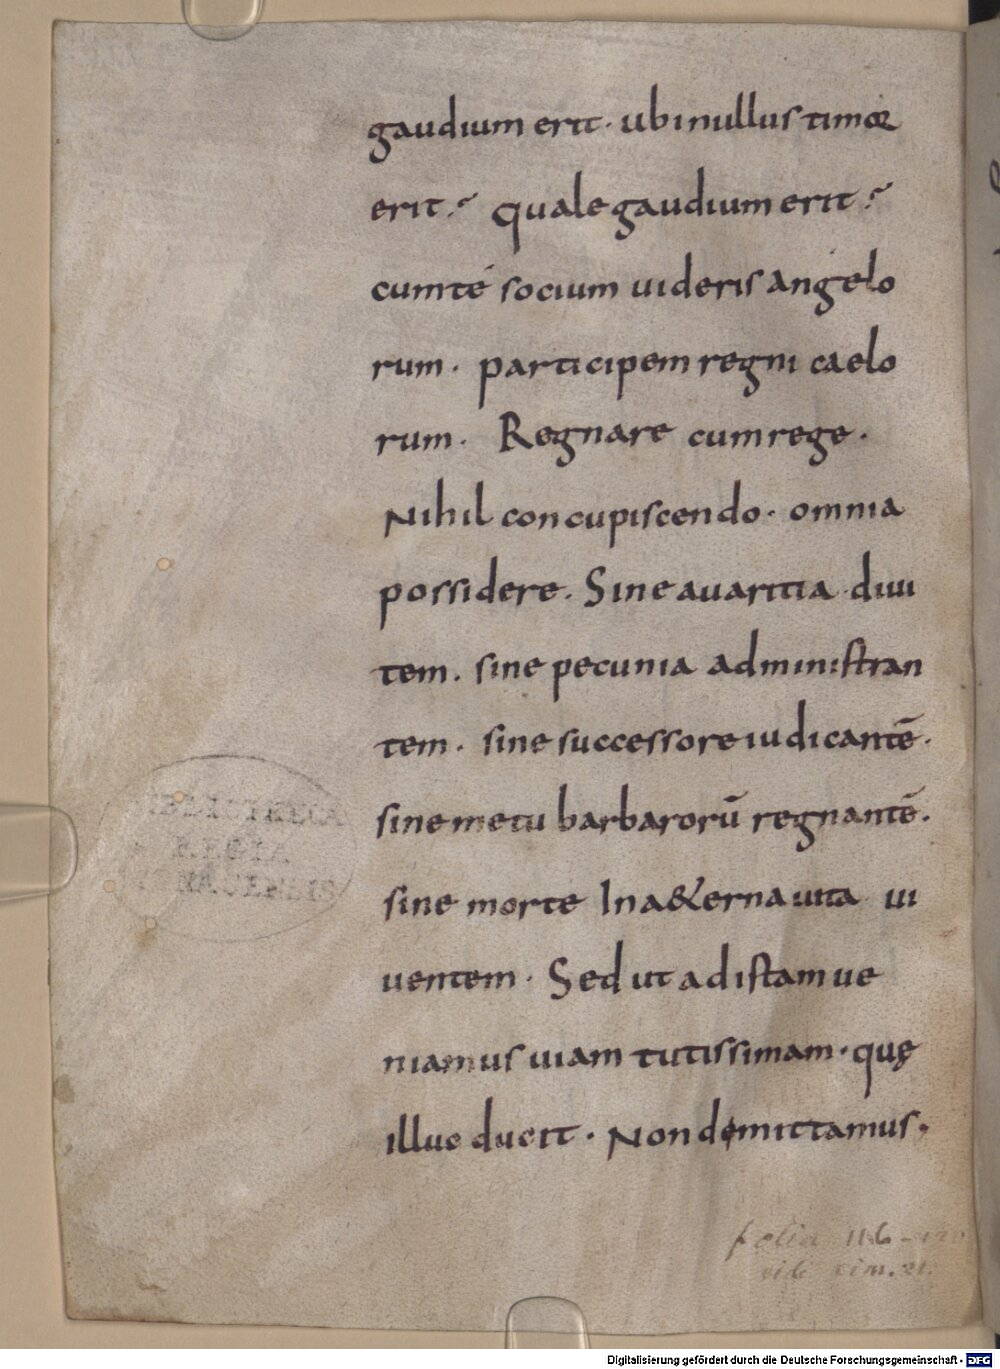 gaudium erit · ubi nullus timor
erit? quale gaudium erit?
cum té socium uideris angelo
rum · participem regni caelo
rum · Regnare cum rege ·
Nihil concupiscendo · omnia
possidere. Sine auaritia diui
tem. sine pecunia administran
tem · sine successore iudicantē ·
sine metu barbarorū regnantē.
sine morte In a&erna uita ui
uentem · Sed ut ad istam ue
niamus uiam tutissimam · quę
illuc ducit · Non demittamus ·
folia 116
vide cim. 21.
Digitalisierung gefördert durch die Deutsche Forschungsgemeinschaft - DFG